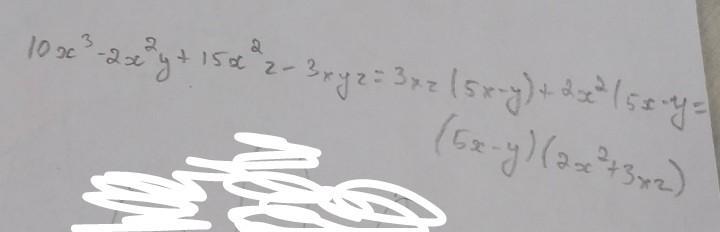 10x³-2x²y+15x²z-3xyz=3xz(5x-y)+2x²(5x-y=
(5x-y)(2x²+3xz)